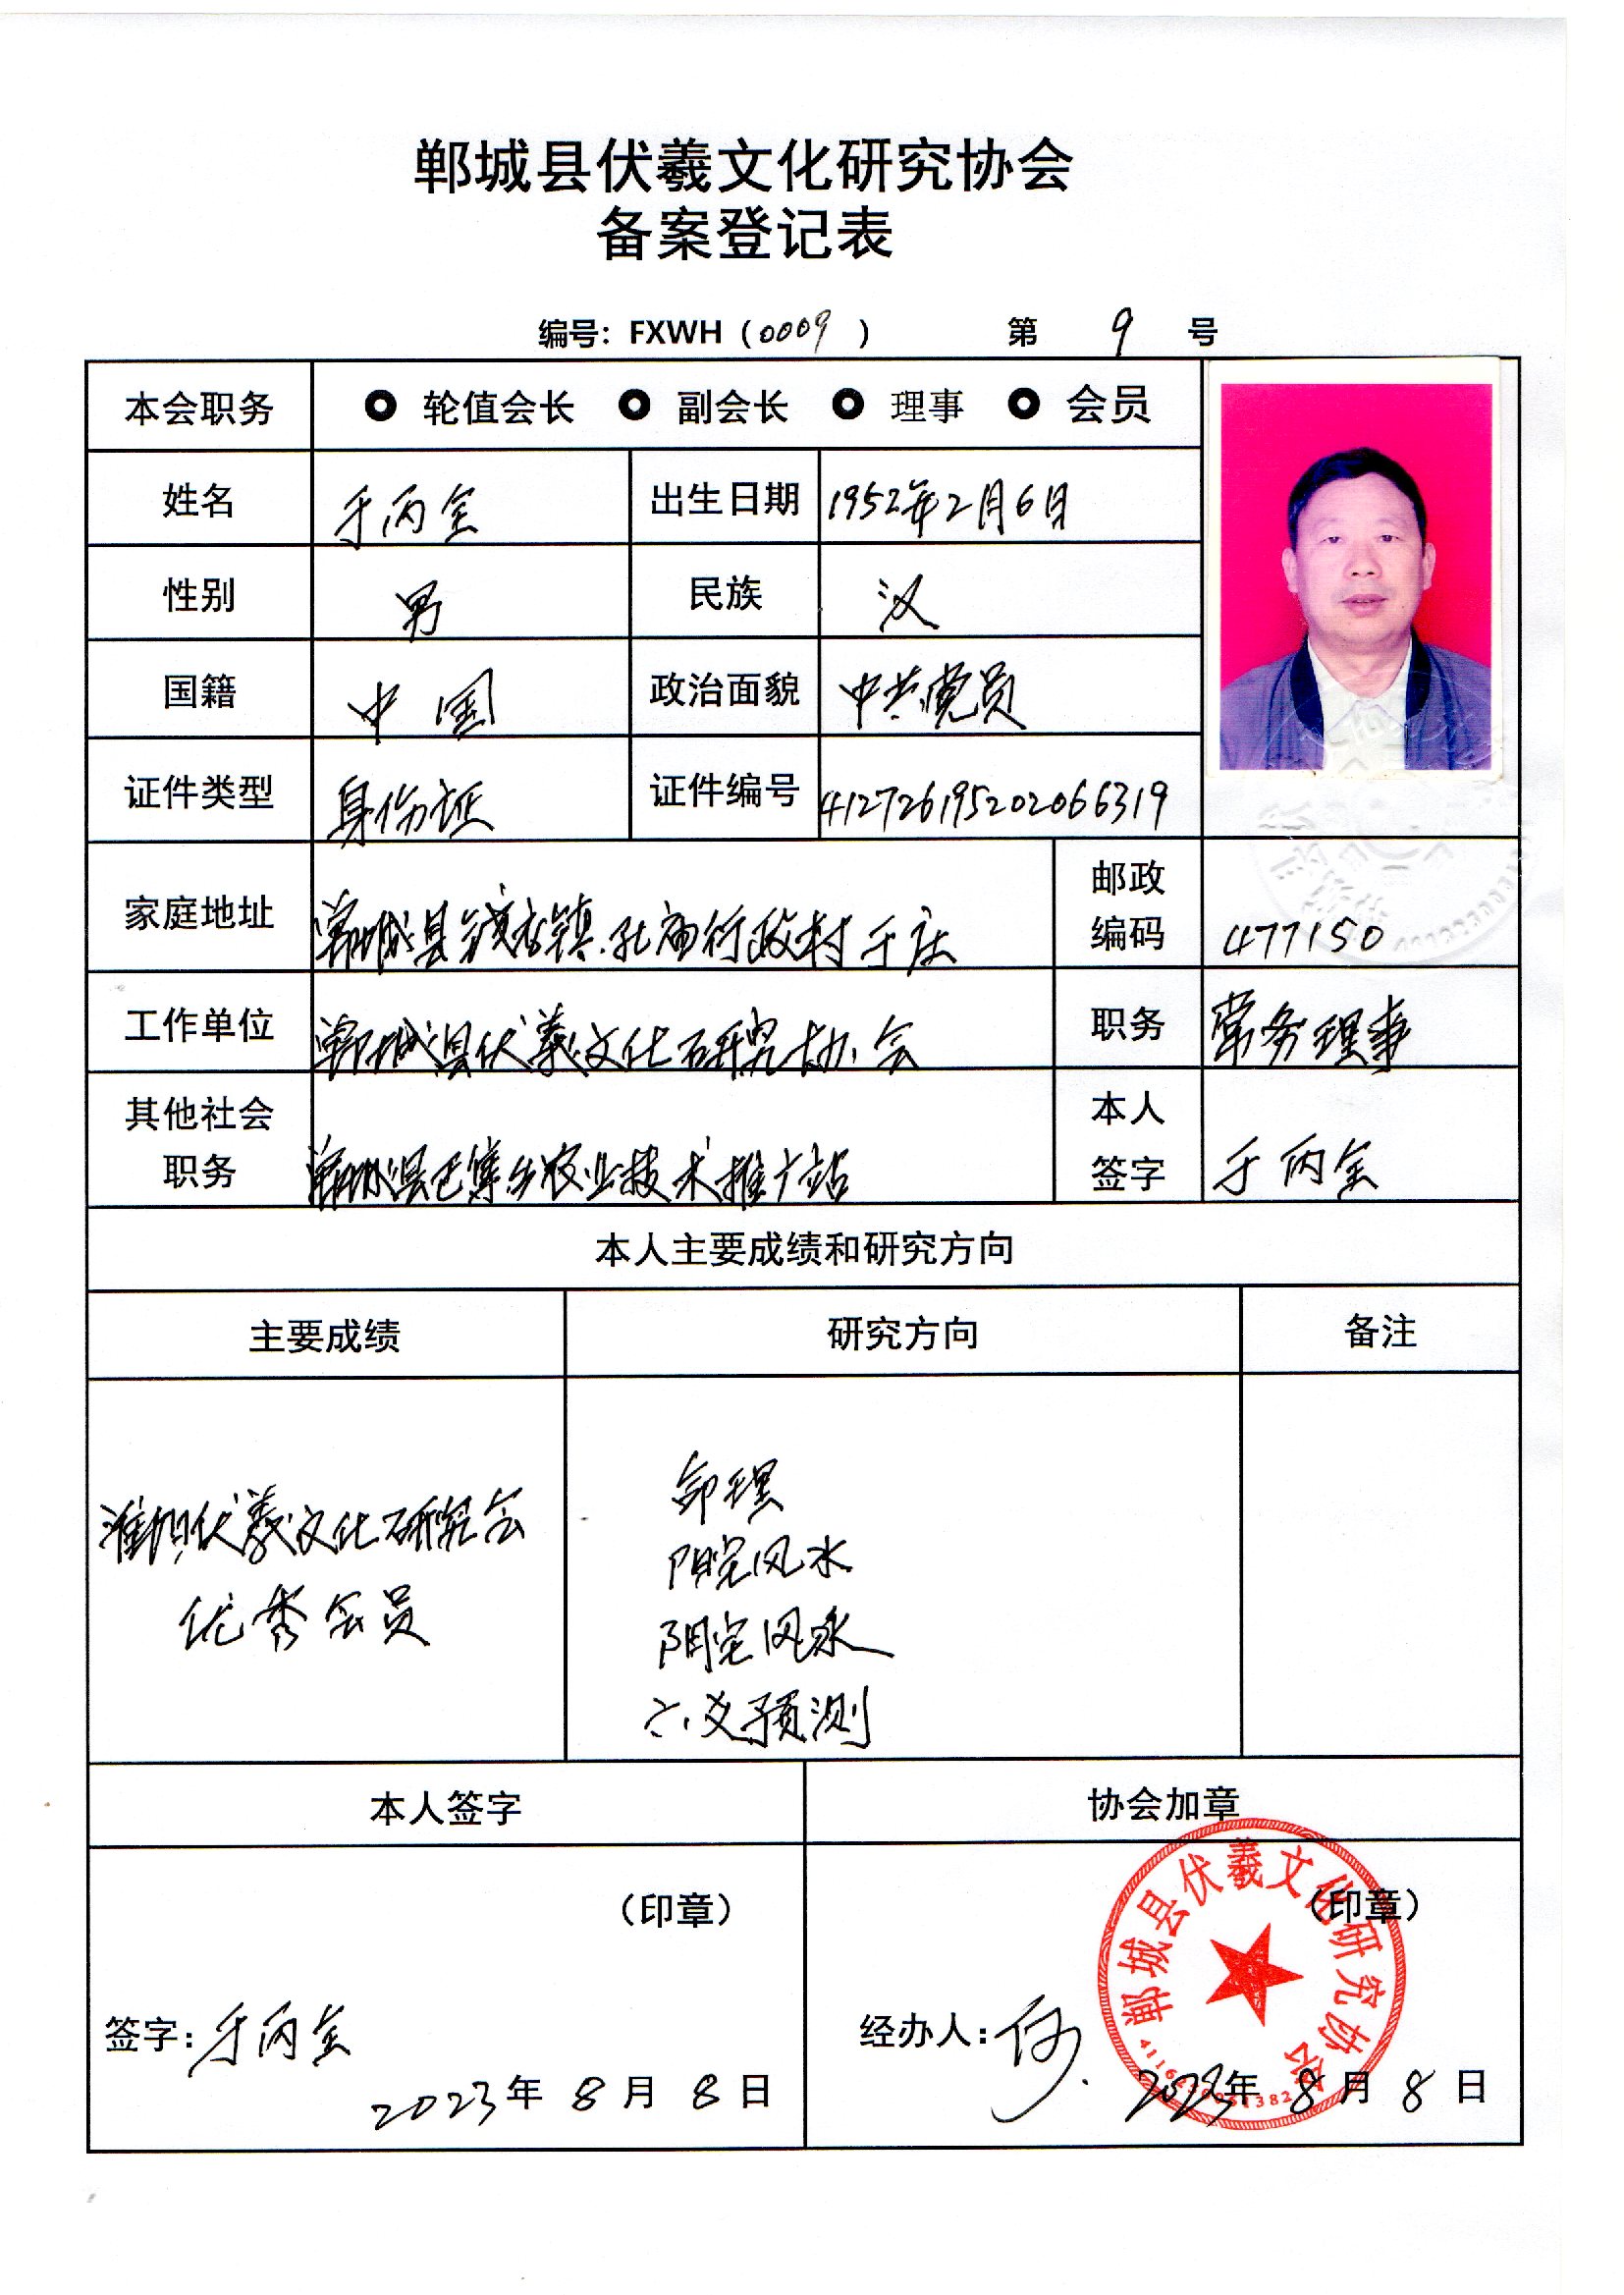 郸城县伏羲文化研究协会
备案登记表
编号：FXWH（0009）　第 9 号
本会职务 轮值会长 副会长 理事 会员
姓名 于丙全 出生日期 1952年2月6日
性别 男 民族 汉
国籍 中国 政治面貌 中共党员
证件类型 身份证 证件编号 412726195202066319
家庭地址 郸城县钱店镇孔庙行政村于庄 邮政编码 477150
工作单位 郸城县伏羲文化研究协会 职务 常务理事
其他社会职务 郸城县巴集乡农业技术推广站 本人签字 于丙全
本人主要成绩和研究方向
主要成绩 研究方向 备注
淮阳伏羲文化研究会
优秀会员
命理
阳宅风水
阴宅风水
六爻预测
本人签字 协会加章
（印章） （印章）
郸城县伏羲文化研究协会
签字：于丙全 经办人：
2023年 8月 8日 2023年 8月 8日